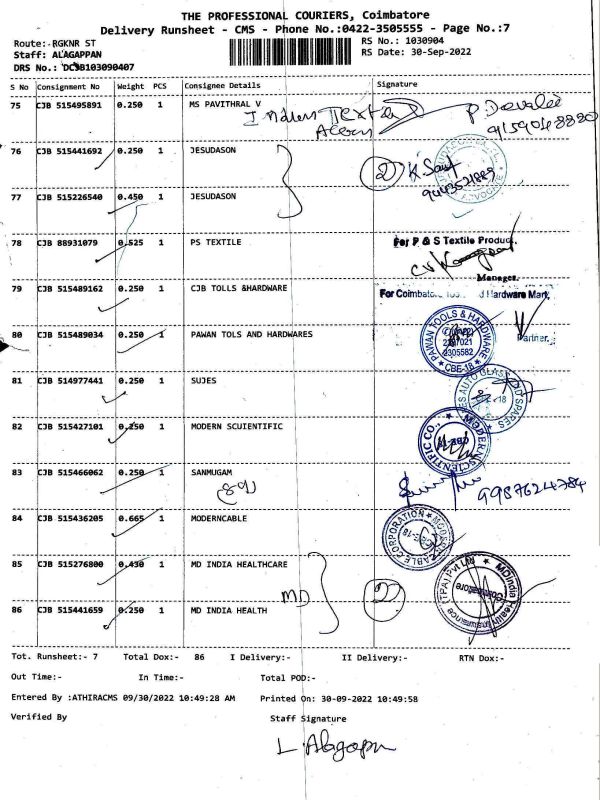 THE PROFESSIONAL COURIERS, Coimbatore
Delivery Runsheet - CMS - Phone No.:0422-3505555 - Page No.:7
Route:-RGKNR ST
RS No.: 1030904
Staff: ALAGAPPAN
RS Date: 30-Sep-2022
DRS No.: DCJB103090407
S No Consignment No Weight PCS Consignee Details Signature
75 CJB 515495891 0.250 1 MS PAVITHRAL V
9159048880
76 CJB 515441692 0.250 1 JESUDASON 2
ADVOCATE
77 CJB 515226540 0.450 1 JESUDASON
78 CJB 88931079 0.525 1 PS TEXTILE For P & S Textile Product.
Manager.
79 CJB 515489162 0.250 1 CJB TOLLS &HARDWARE For Coimbatore Hardware Mart,
Partner.
80 CJB 515489034 0.250 1 PAWAN TOLS AND HARDWARES
PAWAN TOOLS & HARDWARE
2305582
CBE-18
81 CJB 514977441 0.250 1 SUJES
AUTO GLASS AND SPARES
82 CJB 515427101 0.250 1 MODERN SCUIENTIFIC
MODERN SCIENTIFIC CO.,
CBE-18
83 CJB 515466062 0.250 1 SANMUGAM
9987624784
84 CJB 515436205 0.665 1 MODERNCABLE
MODERN CABLE CORPORATION
85 CJB 515276800 0.430 1 MD INDIA HEALTHCARE
MD 2
MDIndia Health Insurance (TPA) Pvt Ltd
Coimbatore
86 CJB 515441659 0.250 1 MD INDIA HEALTH
Tot. Runsheet:- 7 Total Dox:- 86 I Delivery:- II Delivery:- RTN Dox:-
Out Time:- In Time:- Total POD:-
Entered By :ATHIRACMS 09/30/2022 10:49:28 AM Printed On: 30-09-2022 10:49:58
Verified By Staff Signature
L. Alagapn